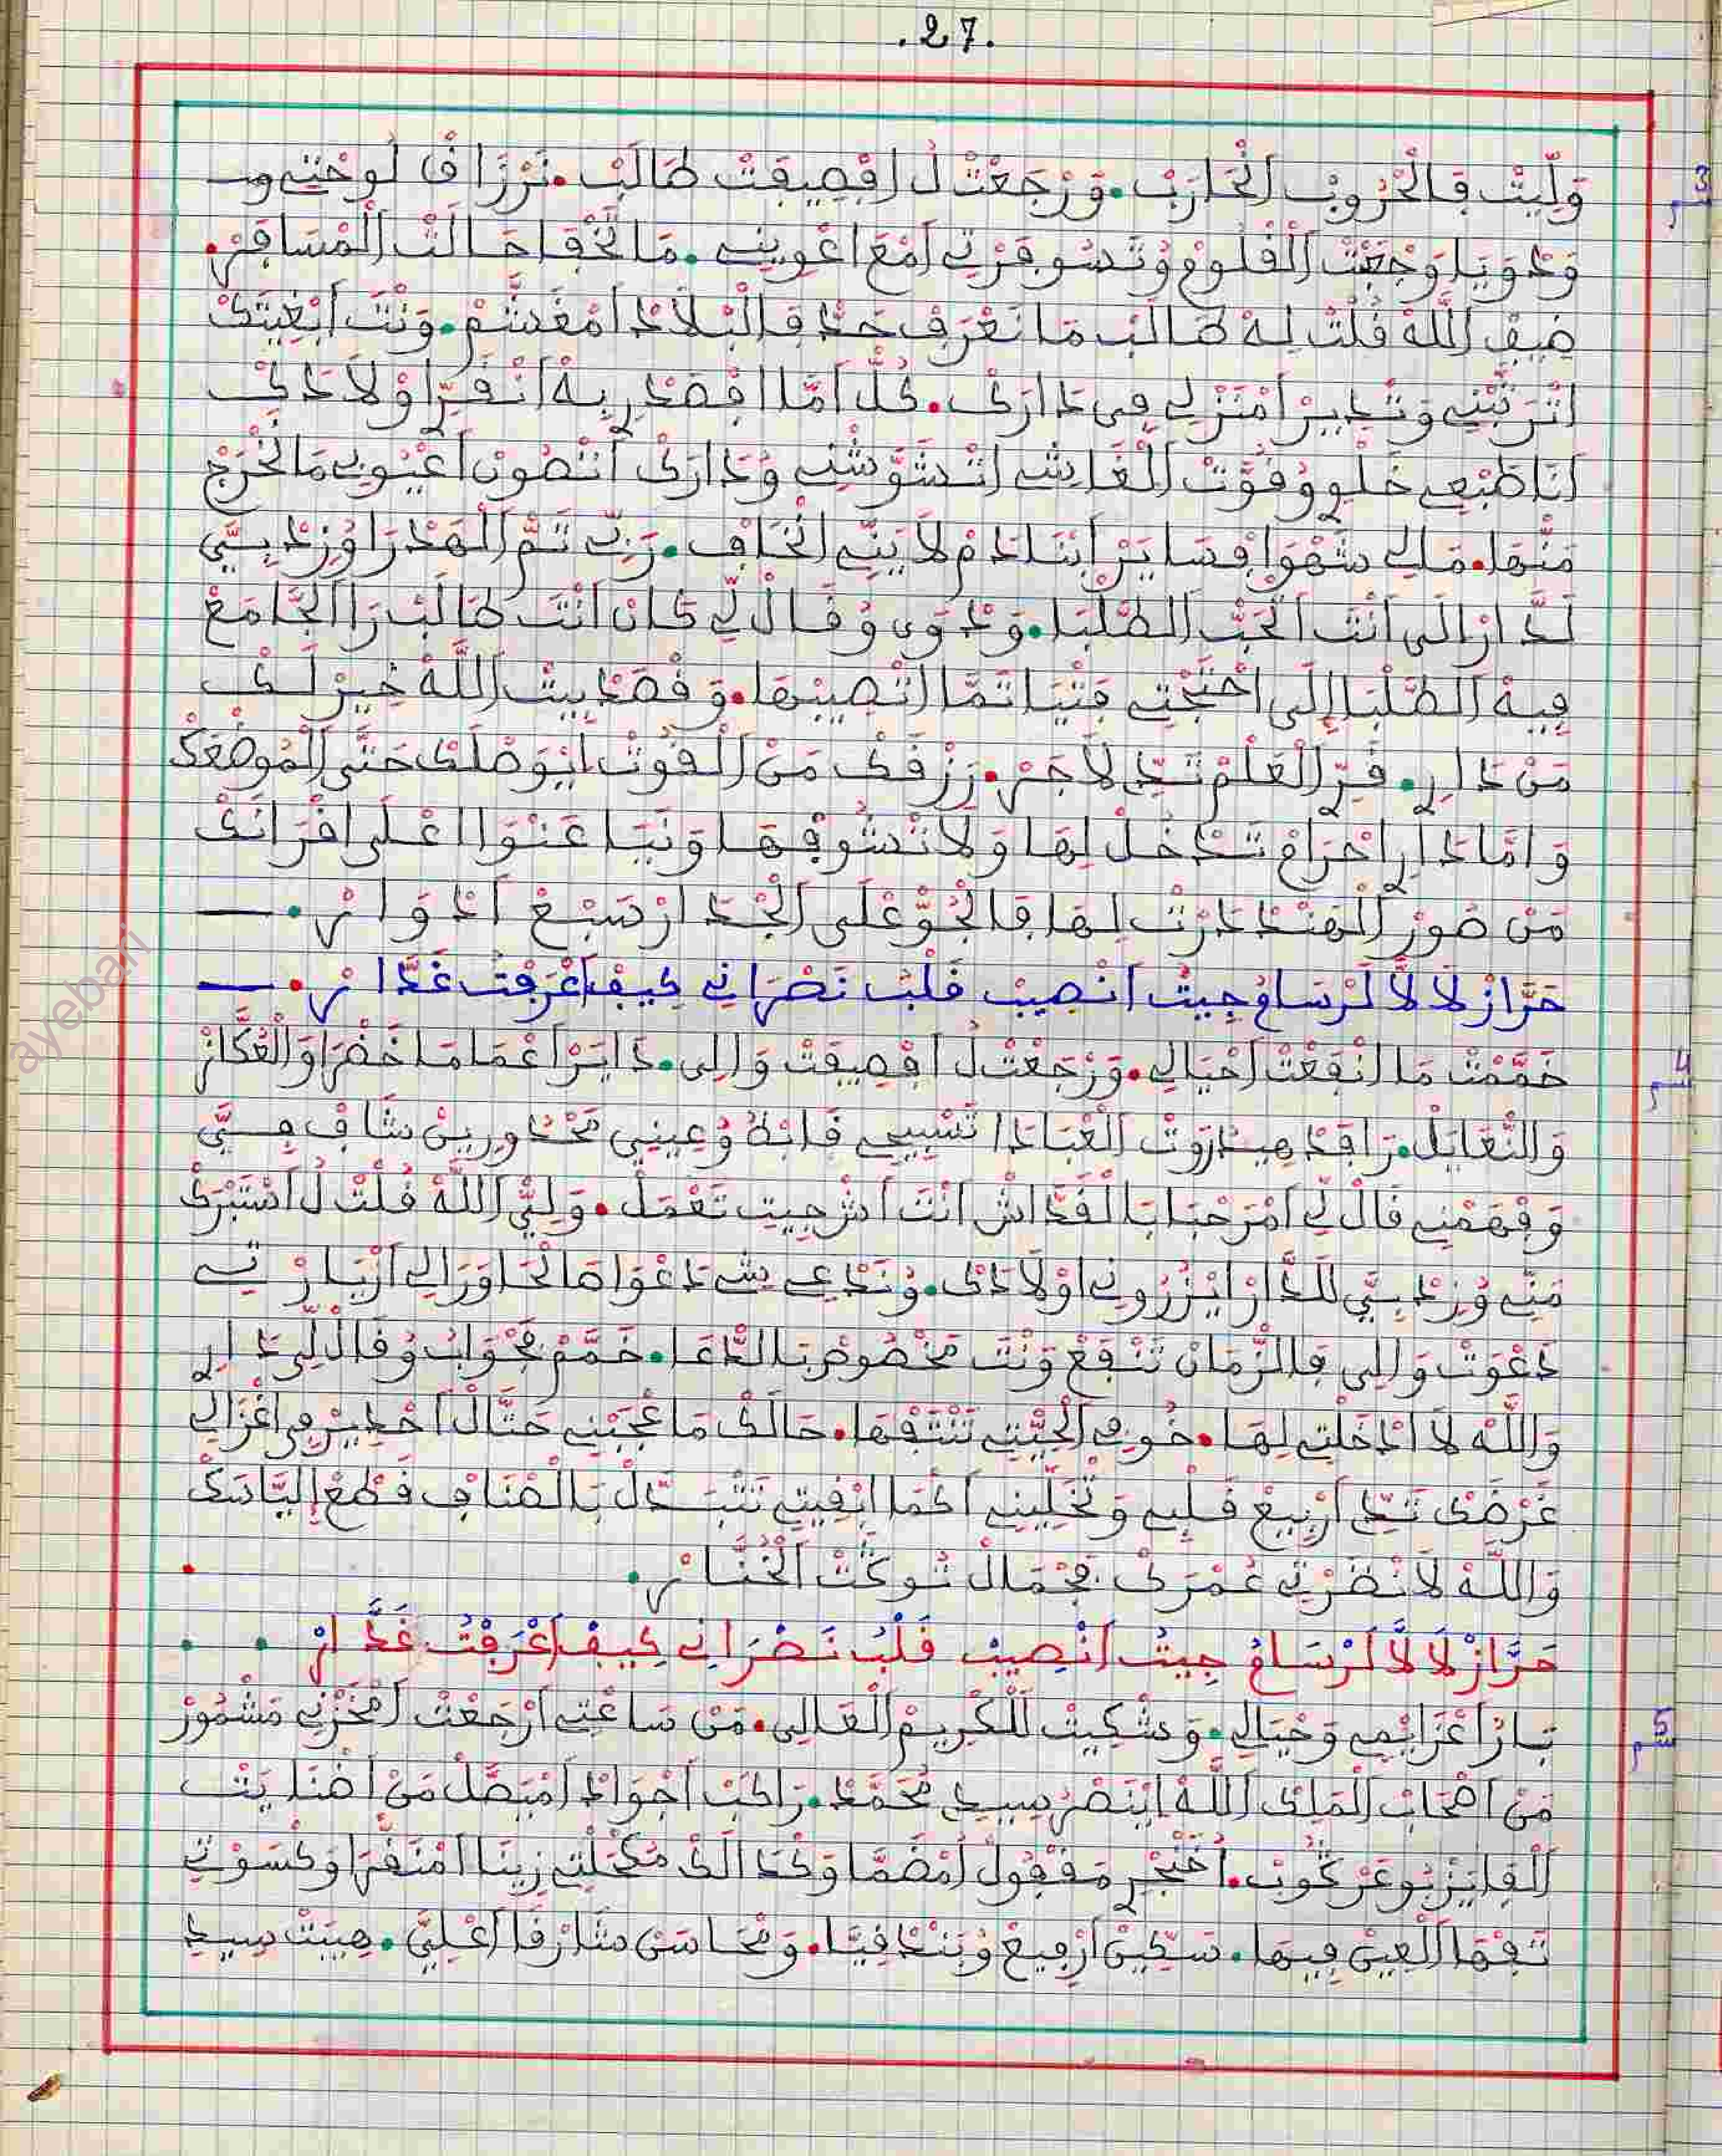 .27.
3
وَلِّيتْ فَالْحْرُوبْ اَنْحَارَبْ. وَرْجَعْتْ لُ اَفْصِيفَتْ طَالَبْ. نَرْزَا فْ لُوحْتِي
وَدْوَايَا وَجْعَبْتْ اَلْقْلُومْ وُنَسُوفَرْتِي اَمْعَ اعْوِينِي. مَا تَخْفَا حَالَتْ اَلْمْسَافَرْ.
ضِيفْ اَللَّهْ قُلْتْ لِهْ طَالَبْ مَا نَعْرَفْ حَدّْ فَالْبْلَادْ اَمْغَشَّمْ. وَنْتَ اَبْغِيتَكْ
اتْرَتَّبْنِي وَتْدِيرْ اَمْنَزْلِي فِي دَارَكْ. كُلّْ اَمَّا افْصَدْرِي بِهْ اَنْقَرِّ اوْلَادَكْ
اَنَا طَبْعِي خَلْوِي وُقُوَّتْ اَلْغَاشِي اتْشَوَّشْنِي وُدَارَكْ اَتْصُونْ اَعْيُوبِي مَا نَخْرَجْ
مَنْهَا. مَالِي شَهْوَا فْسَايَرْ اَبْنَادَمْ لَا يَنِّي انْخَافْ. رَبِّي تَمّْ اَلْهَدْرَا وُزِدْ بِيَّ
لَدَّارْ الَى اَنْتَ اَتْحَبّْ اَلطَّلْبَا. وَدْوَى وُقَالْ لِي كَانْ اَنْتَ طَالَبْ رَا اَلْجَامَعْ
فِيهْ اَلطَّلْبَا إِلَى احْتَجْتِي فَتْيَا تَمَّا اتْصِيبْهَا. وَقْصَدْ بِيتْ اَللَّهْ خِيرْ لَكْ
مَنْ دَارِي. قَرِّ الْعَلْمْ تَدِّي لَاجَرْ. رَزْقَكْ مَنْ اَلْقُوتْ اَيْوَصْلَكْ حَتَّى اَلْمُوضْعَكْ
وَامَّا دَارِي احْرَامْ تَدْخُلْ لِهَا وَلَا تْشُوفْهَا وَنْيَا عَنْوَا اعْلَى اقْرَانَكْ
مَنْ صُورْ اَلْهَنْدْ دَرْتْ لِهَا فَالْجُوّْ عْلَى اَلْجْدَارْ سَبْعْ اَدْوَارْ.
حَرَّازْ لَالَّا لَرْسَامْ جِيتْ اَنْصِيبْ قَلْبْ نَصْرَانِي كِيفْ اَعْرَفْتْ غَدَّارْ.
4
خَمَّمْتْ مَا اَنْفَعْتْ اَحْيَالِي. وَرْجَعْتْ لُ اَفْصِيفَتْ وَالِي. دَايَرْ اَعْمَامَا خَضْرَا وَالْعُكَّازْ
وَالنّْعَايَلْ. رَاقَدْ هِيدَرُوتْ اَلْعْبَادَا تَسْبِيحِي قَابْطُ وُعِينِي مَحْدُورِينْ شَافْ فِيَّ
وَفْهَمْنِي قَالْ لِي اَمْرَحْبَا بَالْقَدَّاشْ اَنْتَ اَشْ جِيتِ تَعْمَلْ. وَلِيّْ اَللَّهْ قُلْتْ لُ اَسْتَبْرَكْ
مَنِّي وُزِدْ بِيَّ للدَّارْ اَيْزُرُونِي اَوْلَادَكْ. وُنَدْعِي شِي دَعْوَا صَالْحَا وَرَالِي اَزْيَارْتِي
دَعْوَتْ وَالِي فَالزّْمَانْ تَنْفَعْ وَنْتَ مَخْصُوصْ بَالدّْعَا. خَمَّمْ بَجْوَابْ وُقَالْ لِي دَارِي
وَاللَّهْ لَا اَدْخَلْتِي لِهَا. خُوفِي اَلْحِيتِي تَنْتَفْهَا. حَالَكْ مَا عْجَبْنِي حَتَّالْ اَخْدِيرْ فِي اغْزَالِي
غَرْضَكْ تَدِّي اَرْبِيعْ قَلْبِي وَتْخَلِّينِي اَكْمَا ابْقِيتِي نَتْبَدَّلْ بَالْصْنَافْ قَطْعْ اِلْيَاسَكْ
وَاللَّهْ لَا نْضَرْتِي عُمْرَكْ بَجْمَالْ شُوكَتْ اَلْخُنَّارْ.
حَرَّازْ لَالَّا لَرْسَامْ جِيتْ اَنْصِيبْ قَلْبْ نَصْرَانِي كِيفْ اَعْرَفْتْ غَدَّارْ
5
بَارْ اَعْزَايْمِي وَحْيَالِي. وَشْكِيتْ لَلْكْرِيمْ اَلْعَالِي. مَنْ سَاعْتِي اَرْجَعْتْ اَمْخَزْنِي مَشْمُورْ
مَنْ اَصْحَابْ اَلْمَلِكْ اَللَّهْ اَيْنَصْرْ سِيدِي مُحَمَّدْ. رَاكَبْ اَجْوَادْ اَمْبَصَّلْ مَنْ اَصْنَادِيَتْ
اَلْفَايْزْ بُوعَرْكُوبْ. اَخَنْجَرِي مَقْفُولْ اَمْضَمَّا وَكْدَالَكْ مَكْحَلْتِي زِينَا اَمْنَقْرَا وَكْسَوْتِي
تَفْهَا اَلْعِينْ فِيهَا. سَكِّينْ اَرْفِيعْ وُبَنْدْقِيَّا. وَمْحَاسَنْ شَارْقَا اَعْلِيَّ. هِيبَتْ سِيدِي
ayebari